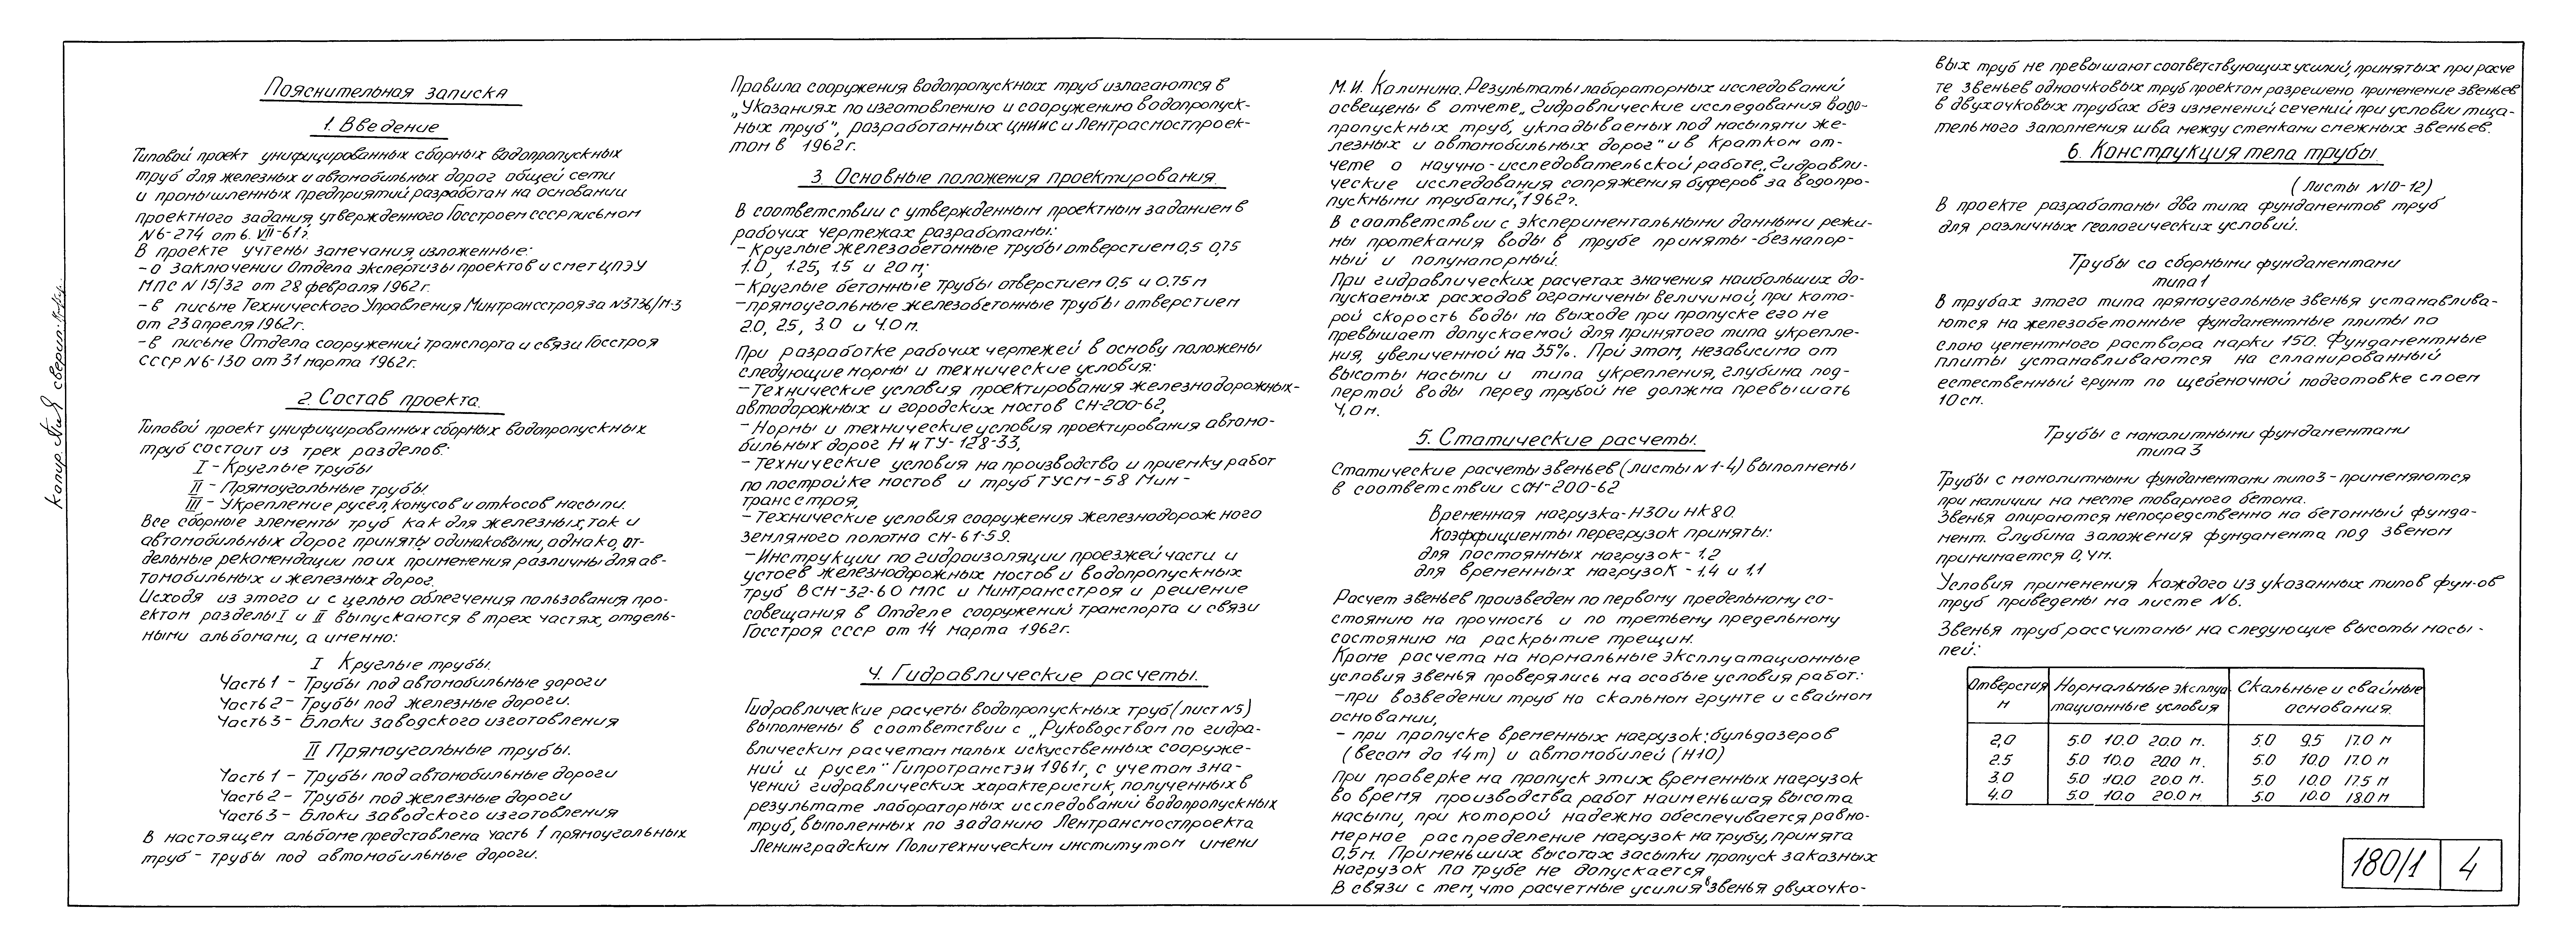 Пояснительная записка
1. Введение
Типовой проект унифицированных сборных водопропускных
труб для железных и автомобильных дорог общей сети
и промышленных предприятий разработан на основании
проектного задания, утвержденного Госстроем СССР письмом
N6-274 от 6. VII-61г.
В проекте учтены замечания, изложенные:
- о заключении Отдела экспертизы проектов и смет ЦПЭУ
МПС N 15/32 от 28 февраля 1962г.
- в письме Технического Управления Минтрансстроя за N3736/м-3
от 23 апреля 1962г.
- в письме Отдела сооружений транспорта и связи Госстроя
СССР N6-130 от 31 марта 1962г.
2. Состав проекта.
Типовой проект унифицированных сборных водопропускных
труб состоит из трех разделов:
I - Круглые трубы
II - Прямоугольные трубы.
III - Укрепление русел, конусов и откосов насыпи.
Все сборные элементы труб как для железных, так и
автомобильных дорог приняты одинаковыми, однако, от-
дельные рекомендации по их применения различны для ав-
томобильных и железных дорог.
Исходя из этого и с целью облегчения пользования про-
ектом разделы I и II выпускаются в трех частях, отдель-
ными альбомами, а именно:
I Круглые трубы.
Часть 1 - Трубы под автомобильные дороги
Часть 2 - Трубы под железные дороги.
Часть 3 - Блоки заводского изготовления
II Прямоугольные трубы.
Часть 1 - Трубы под автомобильные дороги
Часть 2 - Трубы под железные дороги
Часть 3 - Блоки заводского изготовления
В настоящем альбоме представлена часть 1 прямоугольных
труб - трубы под автомобильные дороги.
Правила сооружения водопропускных труб излагаются в
„Указаниях по изготовлению и сооружению водопропуск-
ных труб", разработанных ЦНИИС и Лентрасмостпроек-
том в 1962г.
3. Основные положения проектирования.
В соответствии с утвержденным проектным заданием в
рабочих чертежах разработаны:
- Круглые железобетонные трубы отверстием 0,5 0,75
1.0, 1.25, 1.5 и 2.0 м;
- Круглые бетонные трубы отверстием 0,5 и 0,75 м
- прямоугольные железобетонные трубы отверстием
2.0, 2.5, 3.0 и 4.0 м.
При разработке рабочих чертежей в основу положены
следующие нормы и технические условия:
- Технические условия проектирования железнодорожных-
автодорожных и городских мостов СН-200-62,
- Нормы и технические условия проектирования автомо-
бильных дорог Н и ТУ-128-33,
- Технические условия на производство и приемку работ
по постройке мостов и труб ТУСМ-58 Мин-
трансстроя,
- Технические условия сооружения железнодорожного
земляного полотна СН-61-59.
- Инструкции по гидроизоляции проезжей части и
устоев железнодорожных мостов и водопропускных
труб ВСН-32-60 МПС и Минтрансстроя и решение
совещания в Отделе сооружений транспорта и связи
Госстроя СССР от 14 марта 1962г.
4. Гидравлические расчеты.
Гидравлические расчеты водопропускных труб (лист N5)
выполнены в соответствии с „Руководством по гидра-
влическим расчетам малых искусственных сооруже-
ний и русел" Гипротрансtэи 1961г, с учетом зна-
чений гидравлических характеристик, полученных в
результате лабораторных исследований водопропускных
труб, выполенных по заданию Лентрансмостпроекта
Ленинградским Политехническим институтом имени
М.И. Калинина. Результаты лабораторных исследований
освещены в отчете „Гидравлические исследования водо-
пропускных труб, укладываемых под насыпями же-
лезных и автомобильных дорог" и в кратком от-
чете о научно-исследовательской работе „Гидравли-
ческие исследования сопряжения буферов за водопро-
пускными трубами", 1962г.
В соответствии с экспериментальными данными режи-
мы протекания воды в трубе приняты - безнапор-
ный и полунапорный.
При гидравлических расчетах значения наибольших до-
пускаемых расходов ограничены величиной, при кото-
рой скорость воды на выходе при пропуске его не
превышает допускаемой для принятого типа укрепле-
ния, увеличенной на 35%. При этом, независимо от
высоты насыпи и типа укрепления, глубина под-
пертой воды перед трубой не должна превышать
4,0 м.
5. Статические расчеты.
Статические расчеты звеньев (листы N 1-4) выполнены
в соответствии с СН-200-62
Временная нагрузка - Н30 и НК 80.
Коэффициенты перегрузок приняты:
для постоянных нагрузок - 1.2
для временных нагрузок - 1.4 и 1.1
Расчет звеньев произведен по первому предельному со-
стоянию на прочность и по третьему предельному
состоянию на раскрытие трещин.
Кроме расчета на нормальные эксплуатационные
условия звенья проверялись на особые условия работ:
- при возведении труб на скальном грунте и свайном
основании,
- при пропуске временных нагрузок: бульдозеров
(весом до 14 т) и автомобилей (Н10)
При проверке на пропуск этих временных нагрузок
во время производства работ наименьшая высота
насыпи, при которой надежно обеспечивается равно-
мерное распределение нагрузок на трубу, принята
0,5 м. При меньших высотах засыпки пропуск заказных
нагрузок по трубе не допускается
В связи с тем, что расчетные усилия в звенья двухочко-
вых труб не превышают соответствующих усилий, принятых при расче
те звеньев одноочковых труб проектом разрешено применение звеньев
в двухочковых трубах без изменений сечений при условии тща-
тельного заполнения шва между стенками смежных звеньев.
6. Конструкция тела трубы.
(листы N10-12)
В проекте разработаны два типа фундаментов труб
для различных геологических условий.
Трубы со сборными фундаментами
типа 1
В трубах этого типа прямоугольные звенья устанавлива-
ются на железобетонные фундаментные плиты по
слою цементного раствора марки 150. Фундаментные
плиты устанавливаются на спланированный
естественный грунт по щебеночной подготовке слоем
10 см.
Трубы с монолитными фундаментами
типа 3
Трубы с монолитными фундаментами типа 3 - применяются
при наличии на месте товарного бетона.
Звенья опираются непосредственно на бетонный фунда-
мент. Глубина заложения фундамента под звеном
принимается 0,4 м.
Условия применения каждого из указанных типов фун-ов
труб приведены на листе N6.
Звенья труб рассчитаны на следующие высоты насы-
пей:
Отверстия м | Нормальные эксплуатационные условия | Скальные и свайные основания.
2,0 5.0 10.0 20.0 м. 5.0 9.5 17.0 м
2.5 5.0 10.0 20.0 м. 5.0 10.0 17.0 м
3.0 5.0 10.0 20.0 м. 5.0 10.0 17.5 м
4.0 5.0 10.0 20.0 м. 5.0 10.0 18.0 м
180/1 4
копир. сверит.